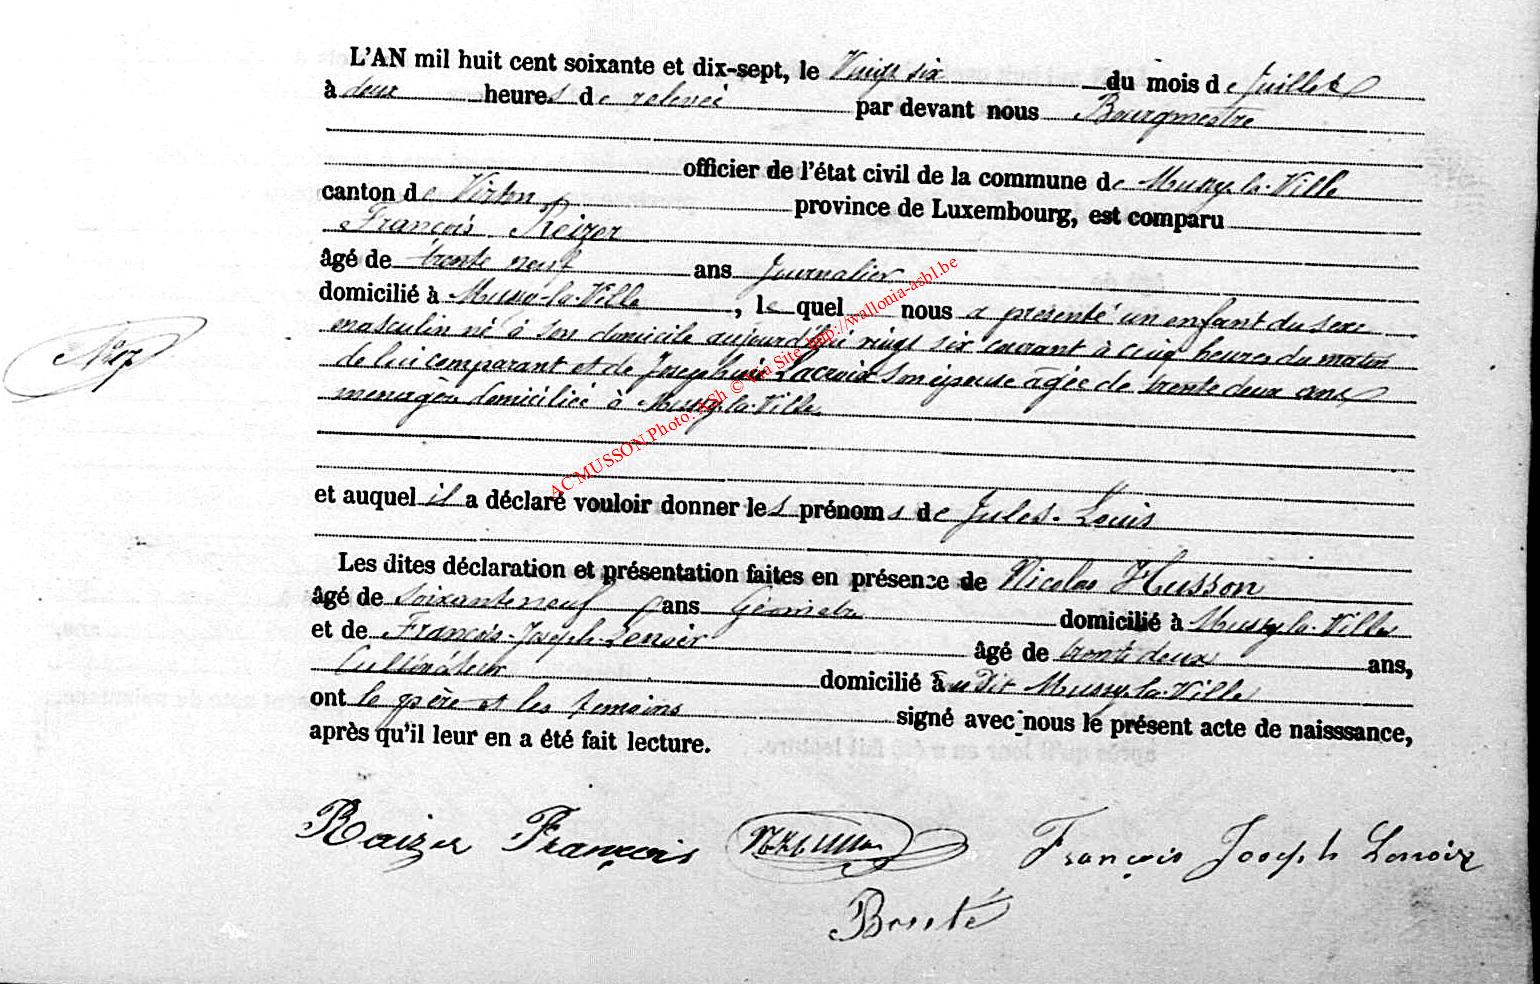 L'AN mil huit cent soixante et dix-sept, le Vingt six du mois de Juillet
à deux heures de relevée par devant nous Bourgmestre
officier de l'état civil de la commune de Mussy-la-Ville
canton de Virton province de Luxembourg, est comparu
François Reizer
âgé de trente neuf ans Journalier
domicilié à Mussy-la-Ville, le quel nous a présenté un enfant du sexe
masculin né à son domicile aujourd'hui vingt six courant à cinq heures du matin
de lui comparant et de Joséphine Lacroix son épouse âgée de trente deux ans
menagère domiciliée à Mussy-la-Ville
et auquel il a déclaré vouloir donner les prénoms de Jules-Louis
Les dites déclaration et présentation faites en présence de Nicolas Husson
âgé de soixante neuf ans Géomètre domicilié à Mussy-la-Ville
et de François-Joseph Lenoir âgé de trente deux ans,
Cultivateur domicilié à dit Mussy-la-Ville
ont le père et les temoins signé avec nous le présent acte de naisssance,
après qu'il leur en a été fait lecture.
Raizer François François Joseph Lenoir
ACMUSSON Photo: ASh © Via Site http://wallonia-asbl.be